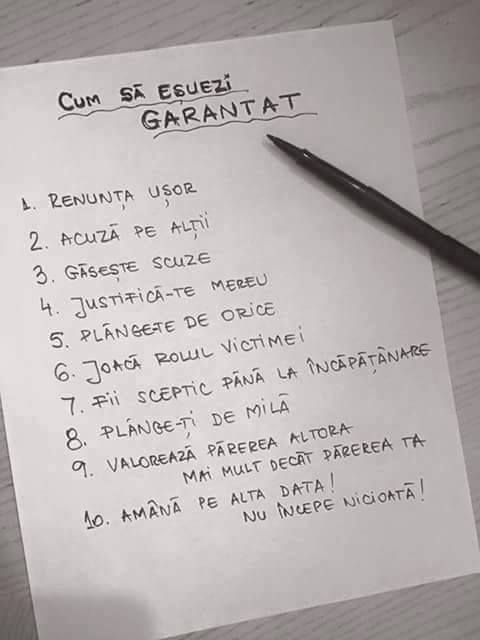 CUM SĂ EȘUEZI
GARANTAT
1. RENUNȚA UȘOR
2. ACUZĂ PE ALȚII
3. GĂSEȘTE SCUZE
4. JUSTIFICĂ-TE MEREU
5. PLÂNGETE DE ORICE
6. JOACĂ ROLUL VICTIMEI
7. FII SCEPTIC PÂNĂ LA ÎNCĂPĂȚÂNARE
8. PLÂNGE-ȚI DE MILĂ
9. VALOREAZĂ PĂREREA ALTORA
MAI MULT DECÂT PĂREREA TA
10. AMÂNĂ PE ALTA DATA!
NU ÎNCEPE NICIOATĂ!